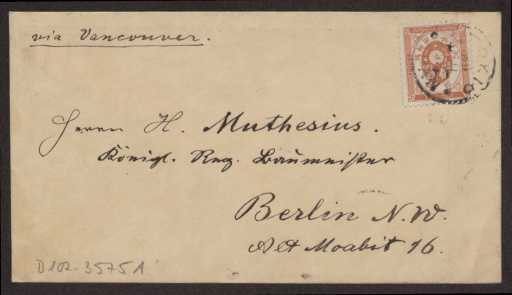 via Vancouver.
TOKIO
Herrn H. Muthesius.
Königl. Reg. Baumeister
Berlin N.W.
Alt Moabit 16.
D102-3575A